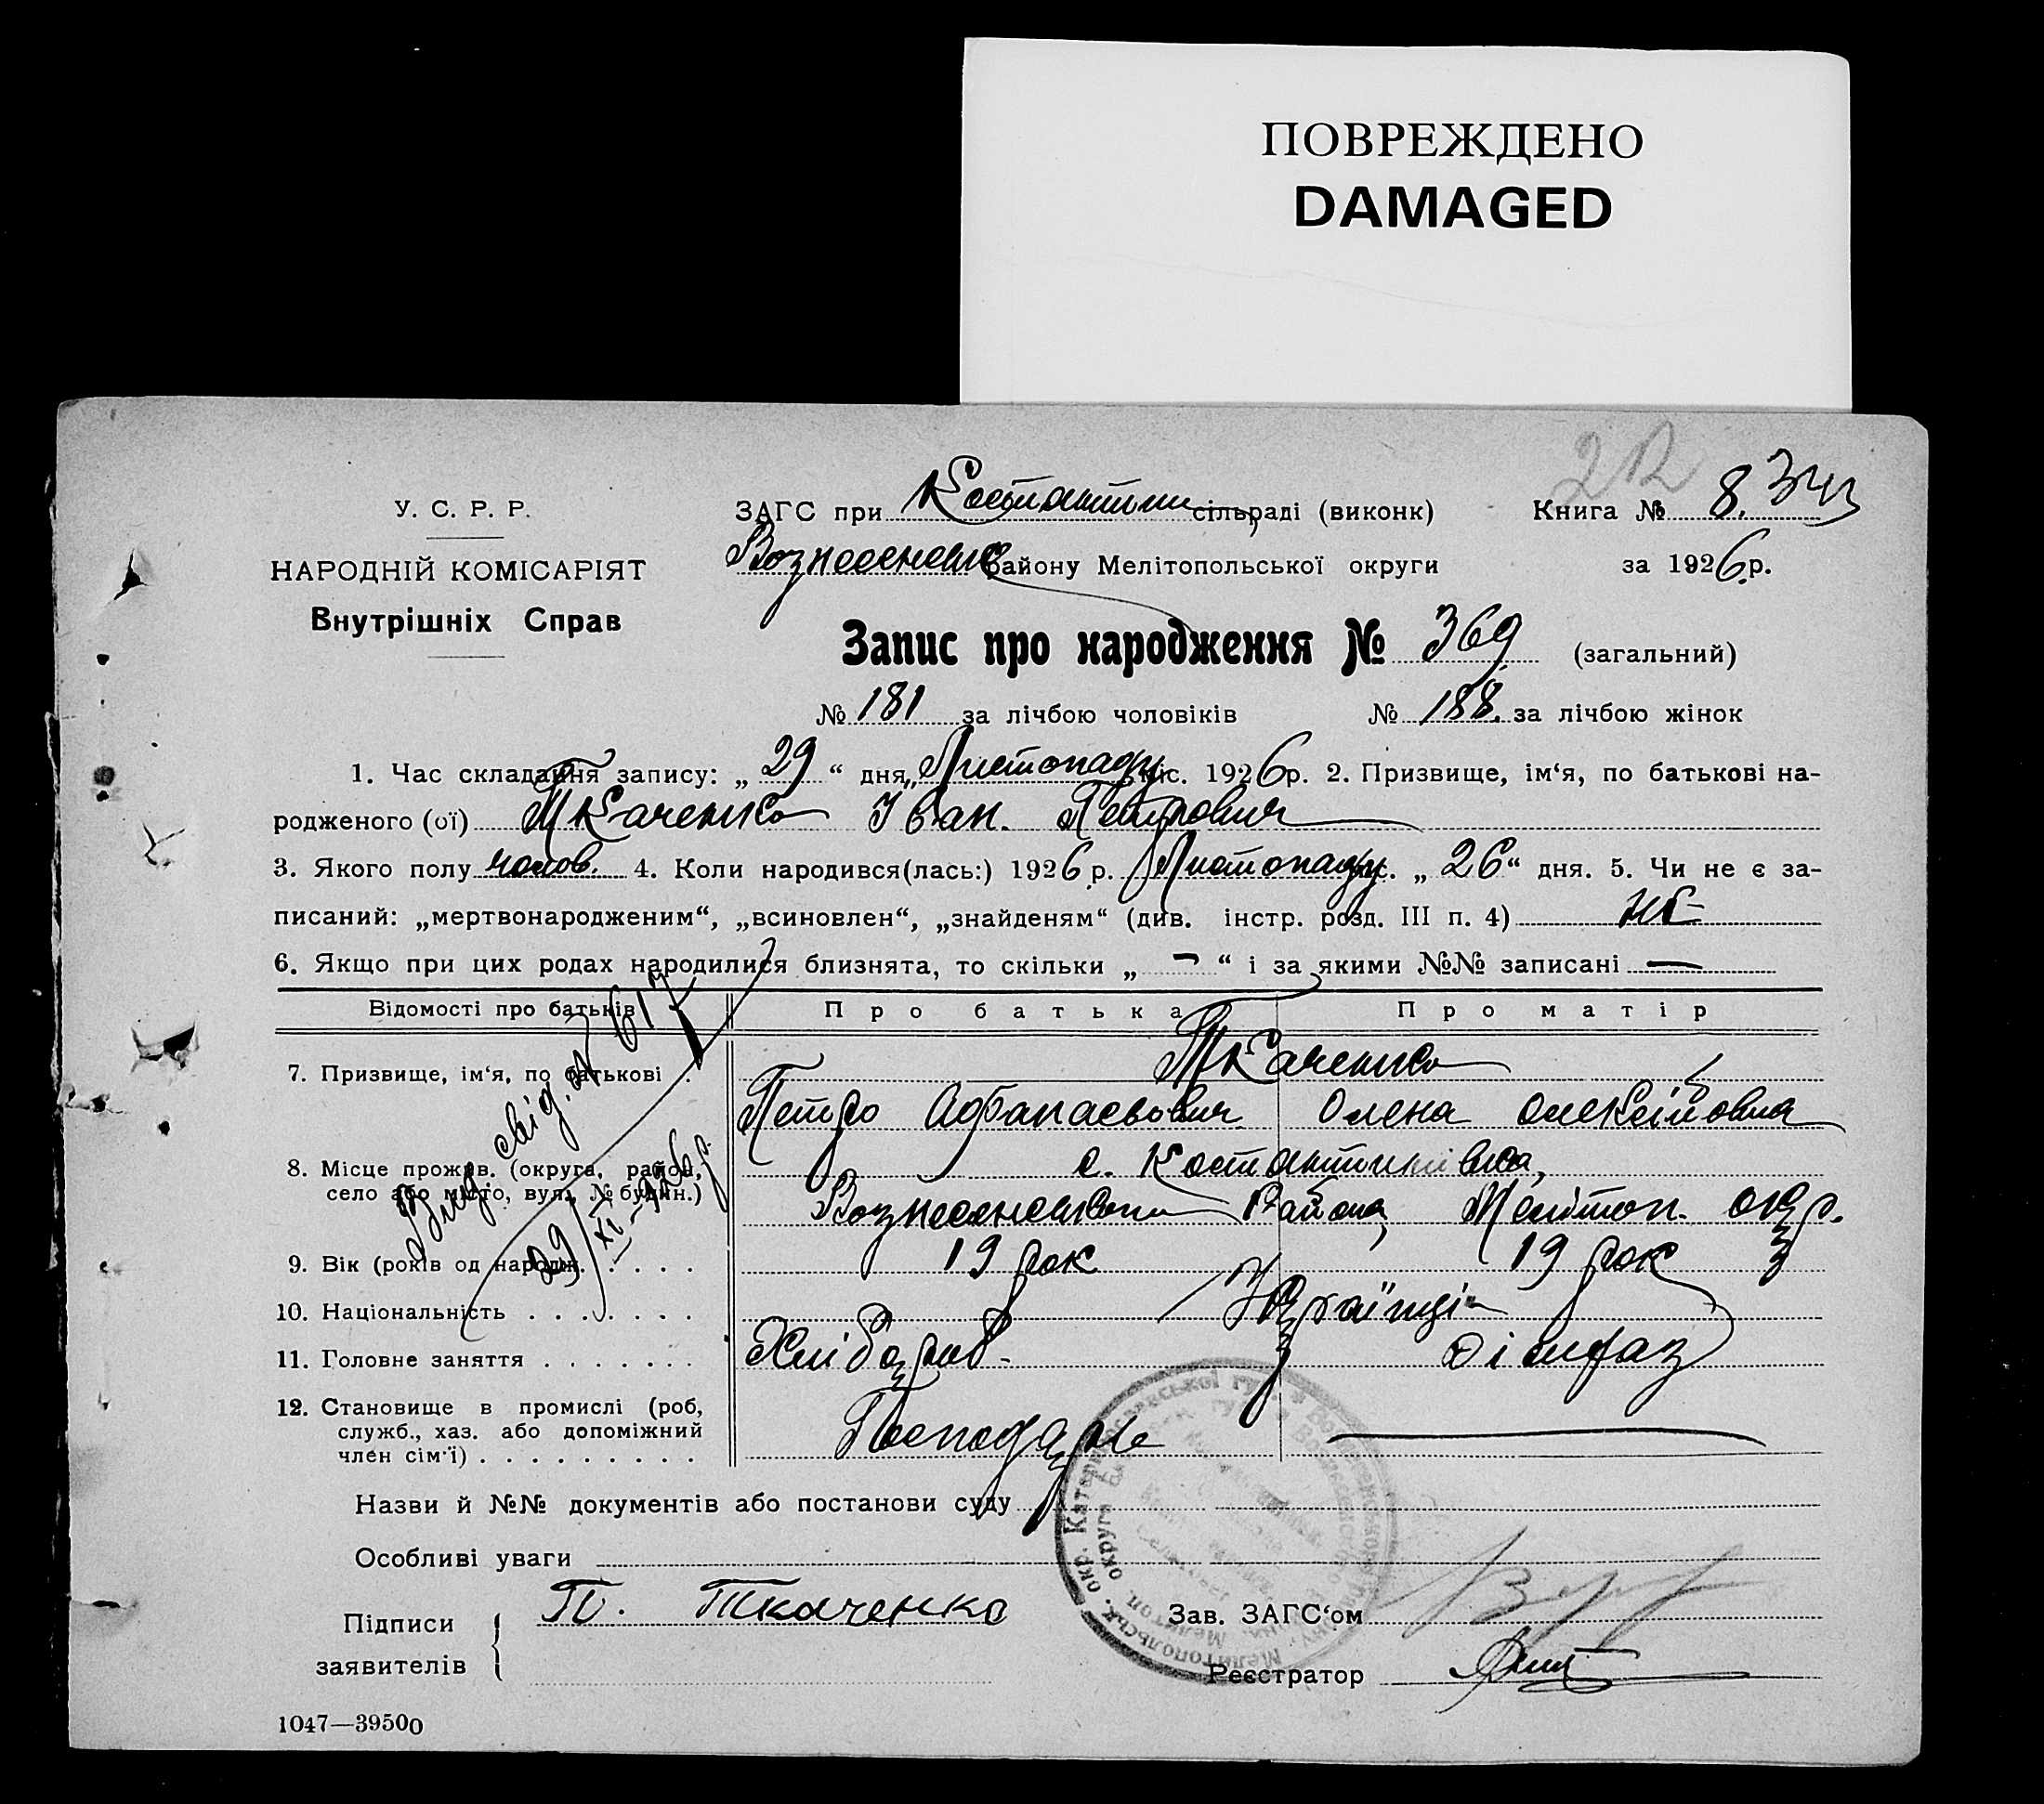 ПОВРЕЖДЕНО
DAMAGED
У. С. Р. Р.
НАРОДНІЙ КОМІСАРІЯТ
Внутрішніх Справ
ЗАГС при Костянтин сільраді (виконк)
Книга № 8.
Вознесенськ району Мелітопольської округи
за 1926 р.
Запис про народження № 369 (загальний)
№ 181 за лічбою чоловіків № 188. за лічбою жінок
1. Час складання запису: „ 29 “ дня „Листопаду міс. 1926р. 2. Призвище, ім‘я, по батькові на-
родженого (ої) Ткаченко Іван. Петрович
3. Якого полу чолов. 4. Коли народився(лась:) 1926 р. Листопаду міс. „ 26 “ дня. 5. Чи не є за-
писаний: „мертвонародженим“, „всиновлен“, „знайденям“ (див. інстр. розд. III п. 4) не
6. Якщо при цих родах народилися близнята, то скільки „ — “ і за якими №№ записані —
Відомості про батьків Про батька Про матір
7. Призвище, ім‘я, по батькові . Ткаченко
Петро Афанасьович Олена Олексіївна
8. Місце прожив. (округа, район, село або місто, вул., № будин.) с. Костантинівка,
Вознесенський Району, Мелітоп. окр.
9. Вік (років од народж. . . . . 19 рок 19 рок
10. Національність . . . . . . . Українці
11. Головне заняття . . . . . . . Хлібороб.
12. Становище в промислі (роб,
служб., хаз. або допоміжний
член сім‘ї) . . . . . . . . . Господар —
Вид. свід. № 617
29/XI–1926р.
Назви й №№ документів або постанови суду
Особливі уваги
Підписи
заявителів
П. Ткаченко
Зав. ЗАГС‘ом
Реєстратор
1047—39500